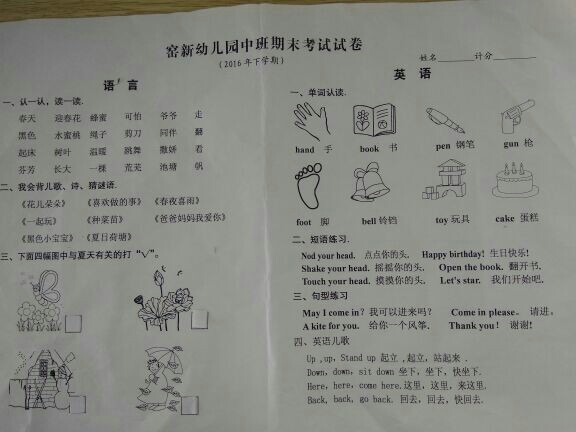 窑新幼儿园中班期末考试试卷
(2016年下学期)
姓名 计分
语 言
一、认一认,读一读.
春天 迎春花 蜂蜜 可怕 爷爷 走
黑色 水蜜桃 绳子 剪刀 同伴 翻
起床 树叶 温暖 跳舞 撒娇 看
芬芳 长大 一棵 荒芜 池塘 帆
二、我会背儿歌、诗、猜谜语.
《花儿朵朵》 《喜欢做的事》 《春夜喜雨》
《一起玩》 《种菜苗》 《爸爸妈妈我爱你》
《黑色小宝宝》 《夏日荷塘》
三、下面四幅图中与夏天有关的打“√”。
英 语
一、单词认读.
hand 手 book 书 pen 钢笔 gun 枪
foot 脚 bell 铃铛 toy 玩具 cake 蛋糕
二、短语练习.
Nod your head. 点点你的头. Happy birthday! 生日快乐!
Shake your head. 摇摇你的头. Open the book. 翻开书.
Touch your head. 摸摸你的头. Let's star. 我们开始吧.
三、句型练习
May I come in? 我可以进来吗? Come in please. 请进。
A kite for you. 给你一个风筝. Thank you ! 谢谢!
四、英语儿歌
Up ,up, Stand up 起立 ,起立, 站起来 .
Down, down, sit down 坐下, 坐下, 快坐下.
Here, here, come here.这里, 这里, 来这里.
Back, back, go back. 回去, 回去, 快回去.